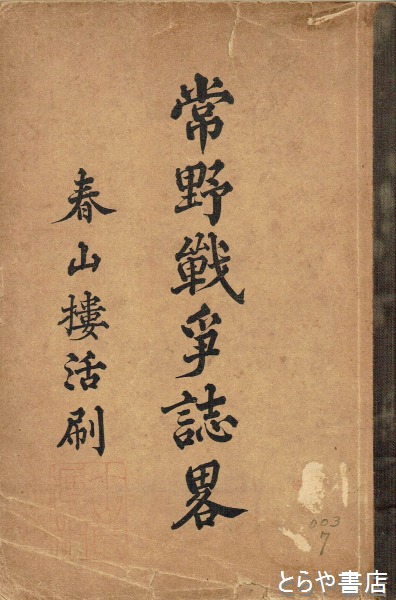 常野戰爭誌畧
春山樓活刷
003
7
とらや書店